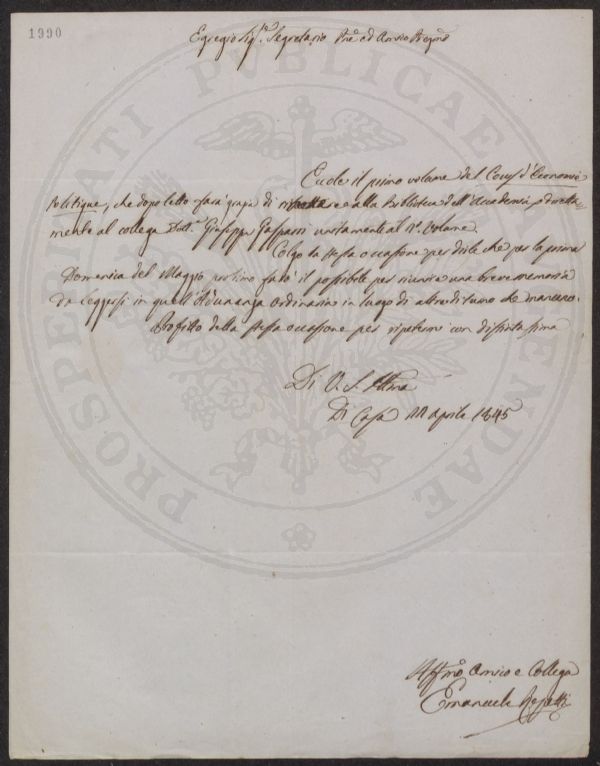 1990
Egregio Sig.re Segretario Pne ed Amico Pregmo
Eccole il primo volume del Cours d'Economie
Politique, che dopo letto farà grazia di alla Biblioteca dell'Accademia, o diretta=
mente al collega Dott.re Giuseppe Gasparri unitamente al 2o. Volume.
Colgo la stessa occasione per dirle che per la prima
Domenica del Maggio prossimo farò il possibile per riunire una breve memoria
da leggersi in quell'Adunanza Ordinaria in luogo di altre di turno che mancano.
Profitto della stessa occasione per ripetermi con distintissima
Di V. S. Illma
Di Casa 11 Aprile 1845
Affmo Amico e Collega
Emanuele Repetti
PROSPERITATI PUBLICAE AUGENDAE